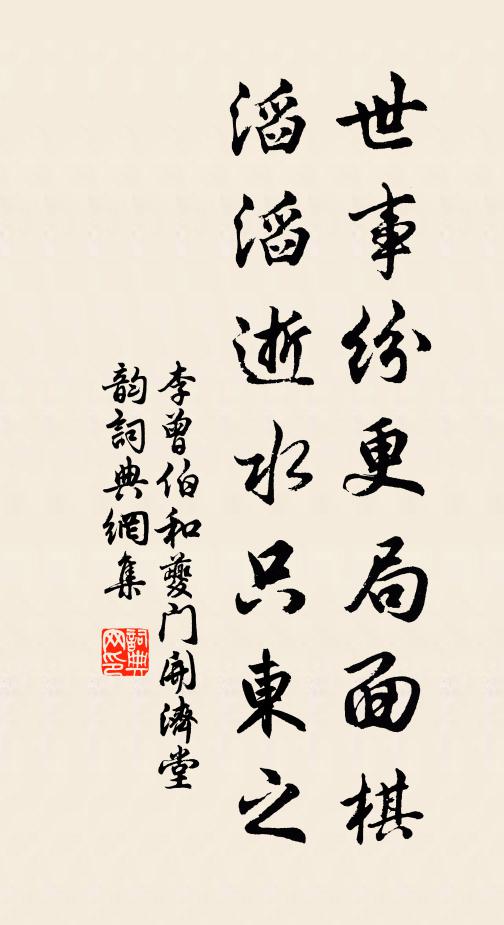 世事紛更局面棋
滔滔逝水只東之
李曾伯和夔門開濟堂
韵詞典網集
詞典网印